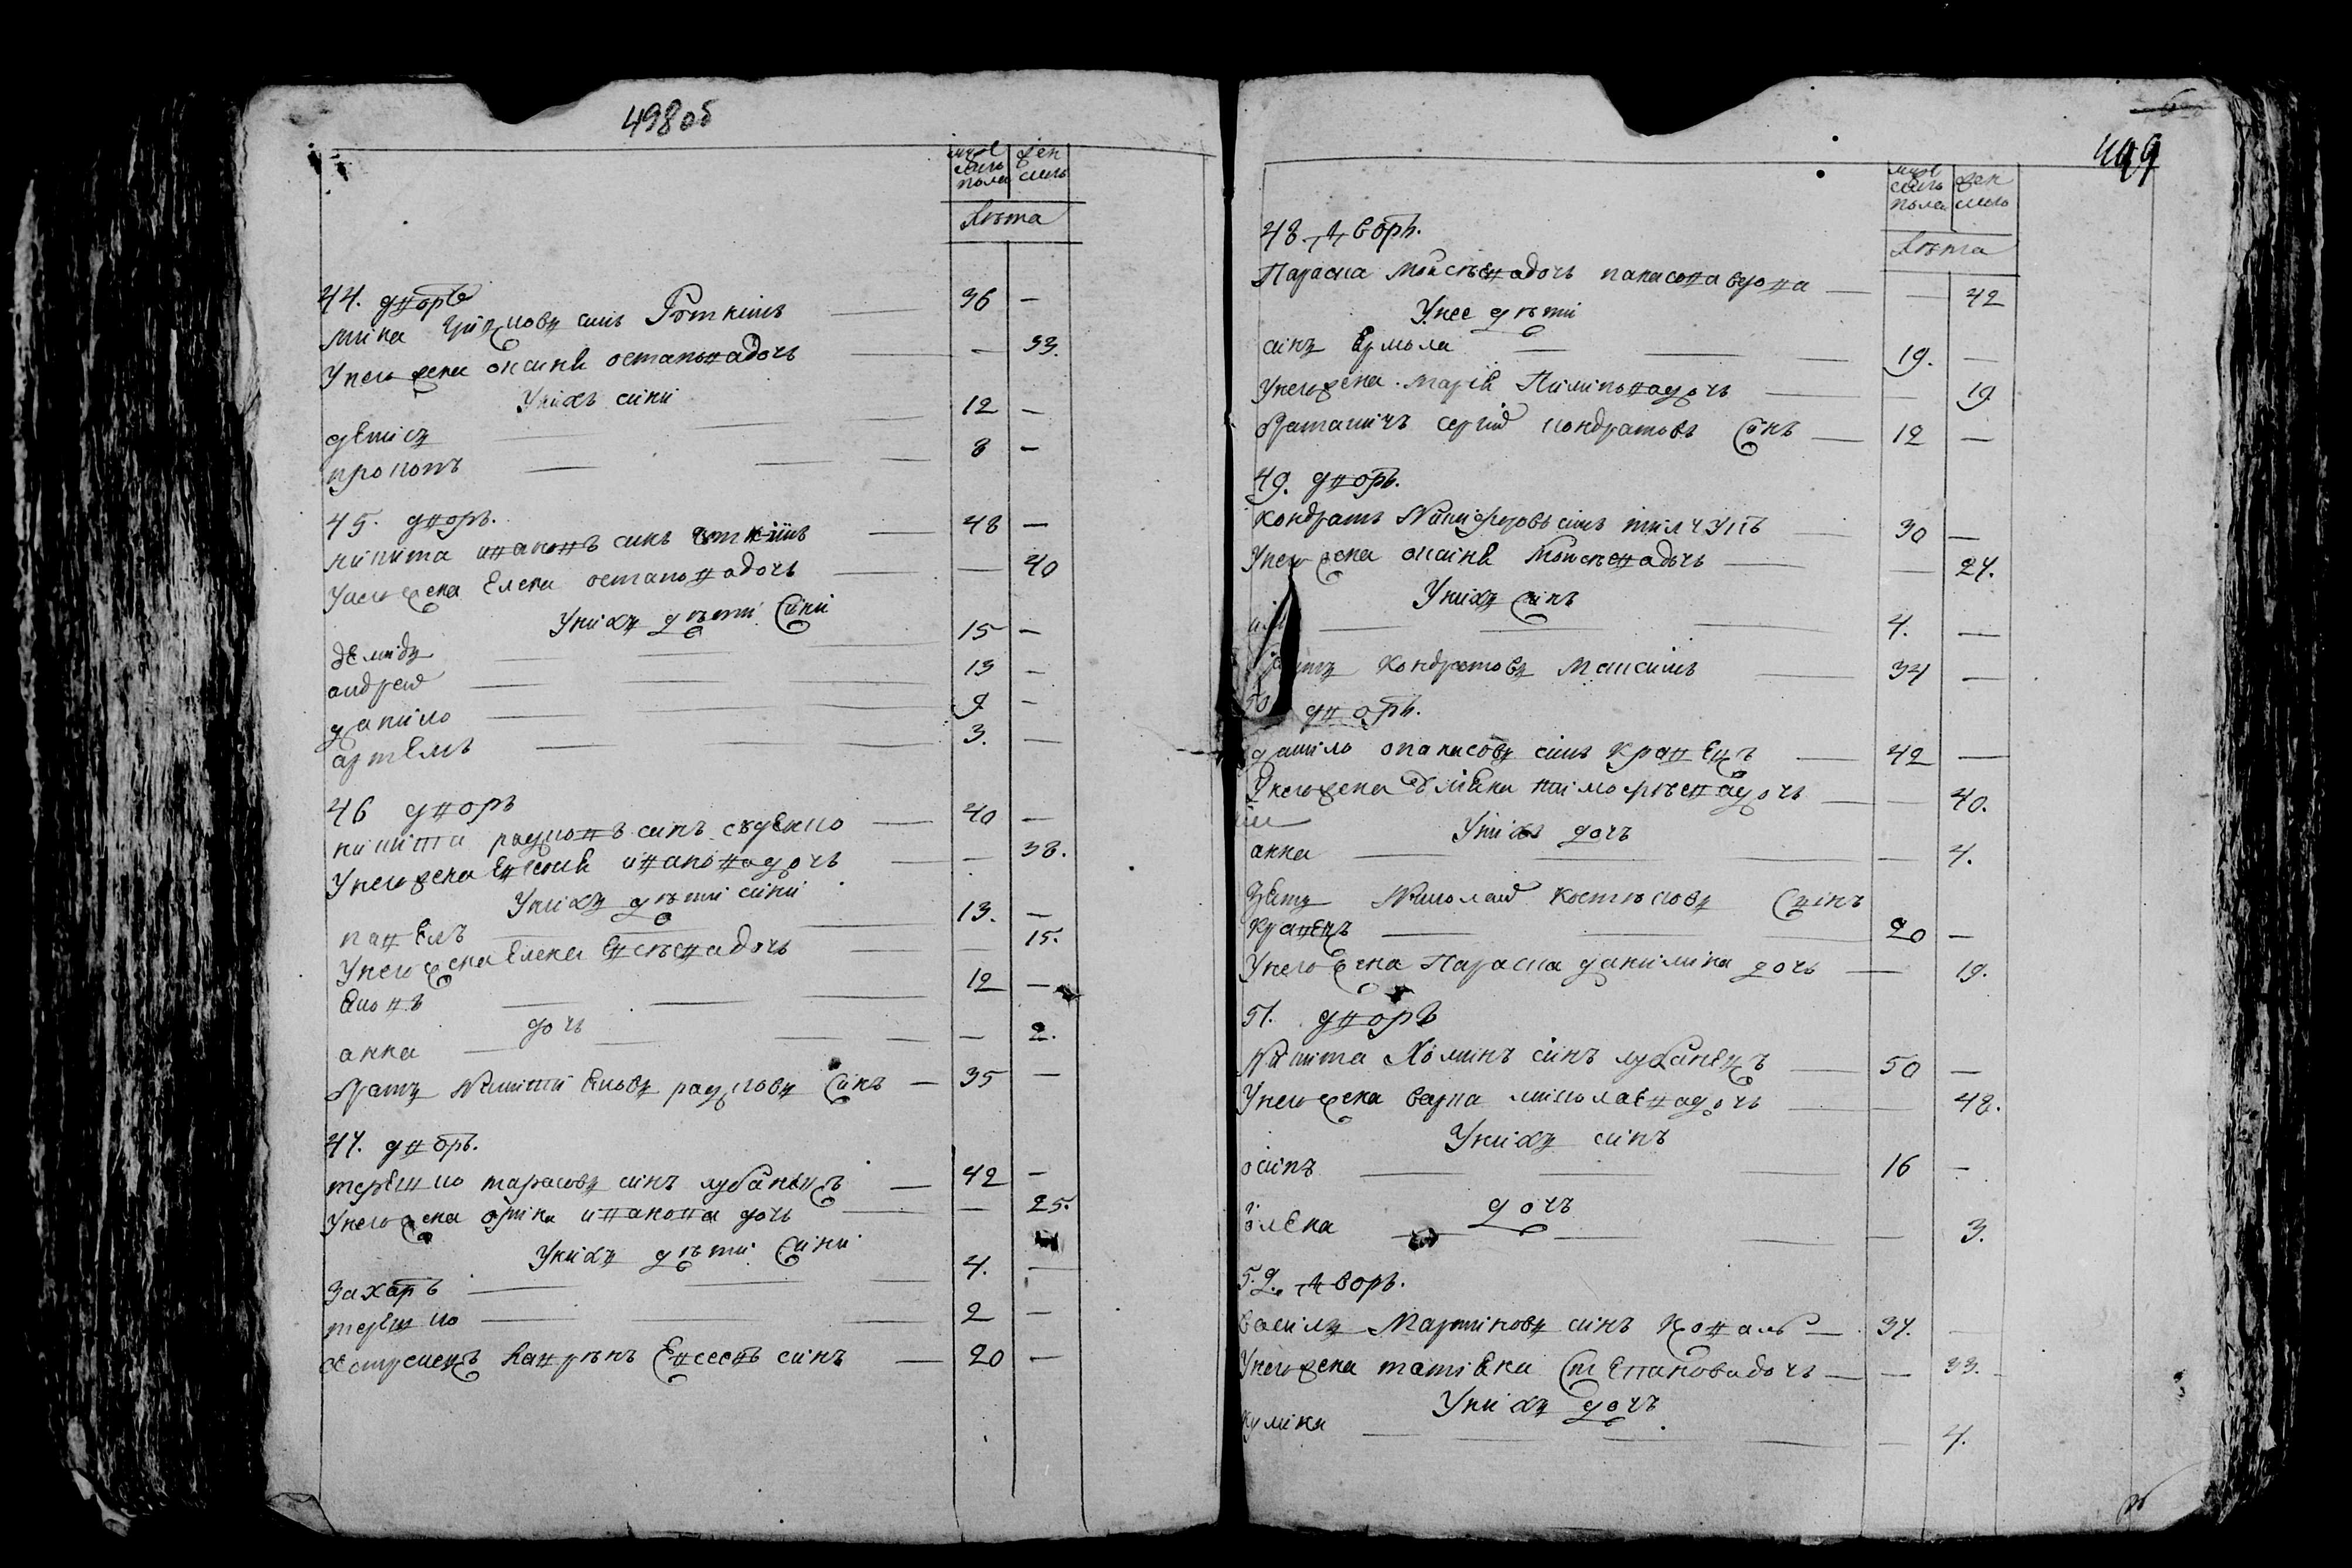 498 об
муж
ска
пола
жен
ска
лѣта
44. дворъ
сина 36 —
У него жена оксинѣ остаповадочъ — 33.
У нихъ сини
денисъ 12 —
прокопъ 8 —
45. дворъ.
никита ивановъ синъ 48 —
У него жена Елена остаповадочъ — 40
У нихъ дѣти сини
демидъ 15 —
андрей 13 —
данило 9 —
артемъ 3. —
46 дворъ
никита радионовъ синъ 40 —
У него жена Евгения ивановадочъ — 38.
У нихъ дѣти сини
павелъ 13. —
У него жена Елена Евсѣевадочъ — 15.
12 —
дочъ
анна — 2.
братъ никити синъ — 35 —
47. дворъ.
терешко тарасовъ синъ лубанецъ — 42 —
У него жена орина иванова дочъ — 25.
У нихъ дѣти сини
захаръ 4. —
терешко 2 —
лаврѣнъ Евсеевъ синъ — 20 —
499
муж
ска
пола
жен
ска
лѣта
48. дворъ.
Параска Мойсѣевадочъ вдова — — 42
У нее дѣти
синъ Ермола 19. —
У него жена марія Пилиповадочъ — 19
сергій кондратовъ синъ — 12 —
49. дворъ.
кондратъ Никифоровъ синъ 30 —
У него жена оксинѣ Мойсѣевадочъ — 27.
У нихъ синъ
4. —
братъ Кондратовъ Максимъ 34 —
50 дворъ.
данило опанасовъ синъ Кравецъ — 42 —
У него жена тимофѣевадочъ — — 40.
У нихъ дочъ
анна — 4.
зять Николай синъ
Кравецъ 20 —
У него жена Параска данилина дочъ — 19.
51. дворъ
Никита Хоминъ синъ лубанецъ — 50 —
У него жена варка николаевадочъ — 48.
У нихъ синъ
осипъ 16 —
дочъ
олена — 3.
52. дворъ.
василь Мартиновъ синъ Коваль — 37. —
У него жена татіяна Степановадочъ — — 33.
У нихъ дочъ
кулина — 4.